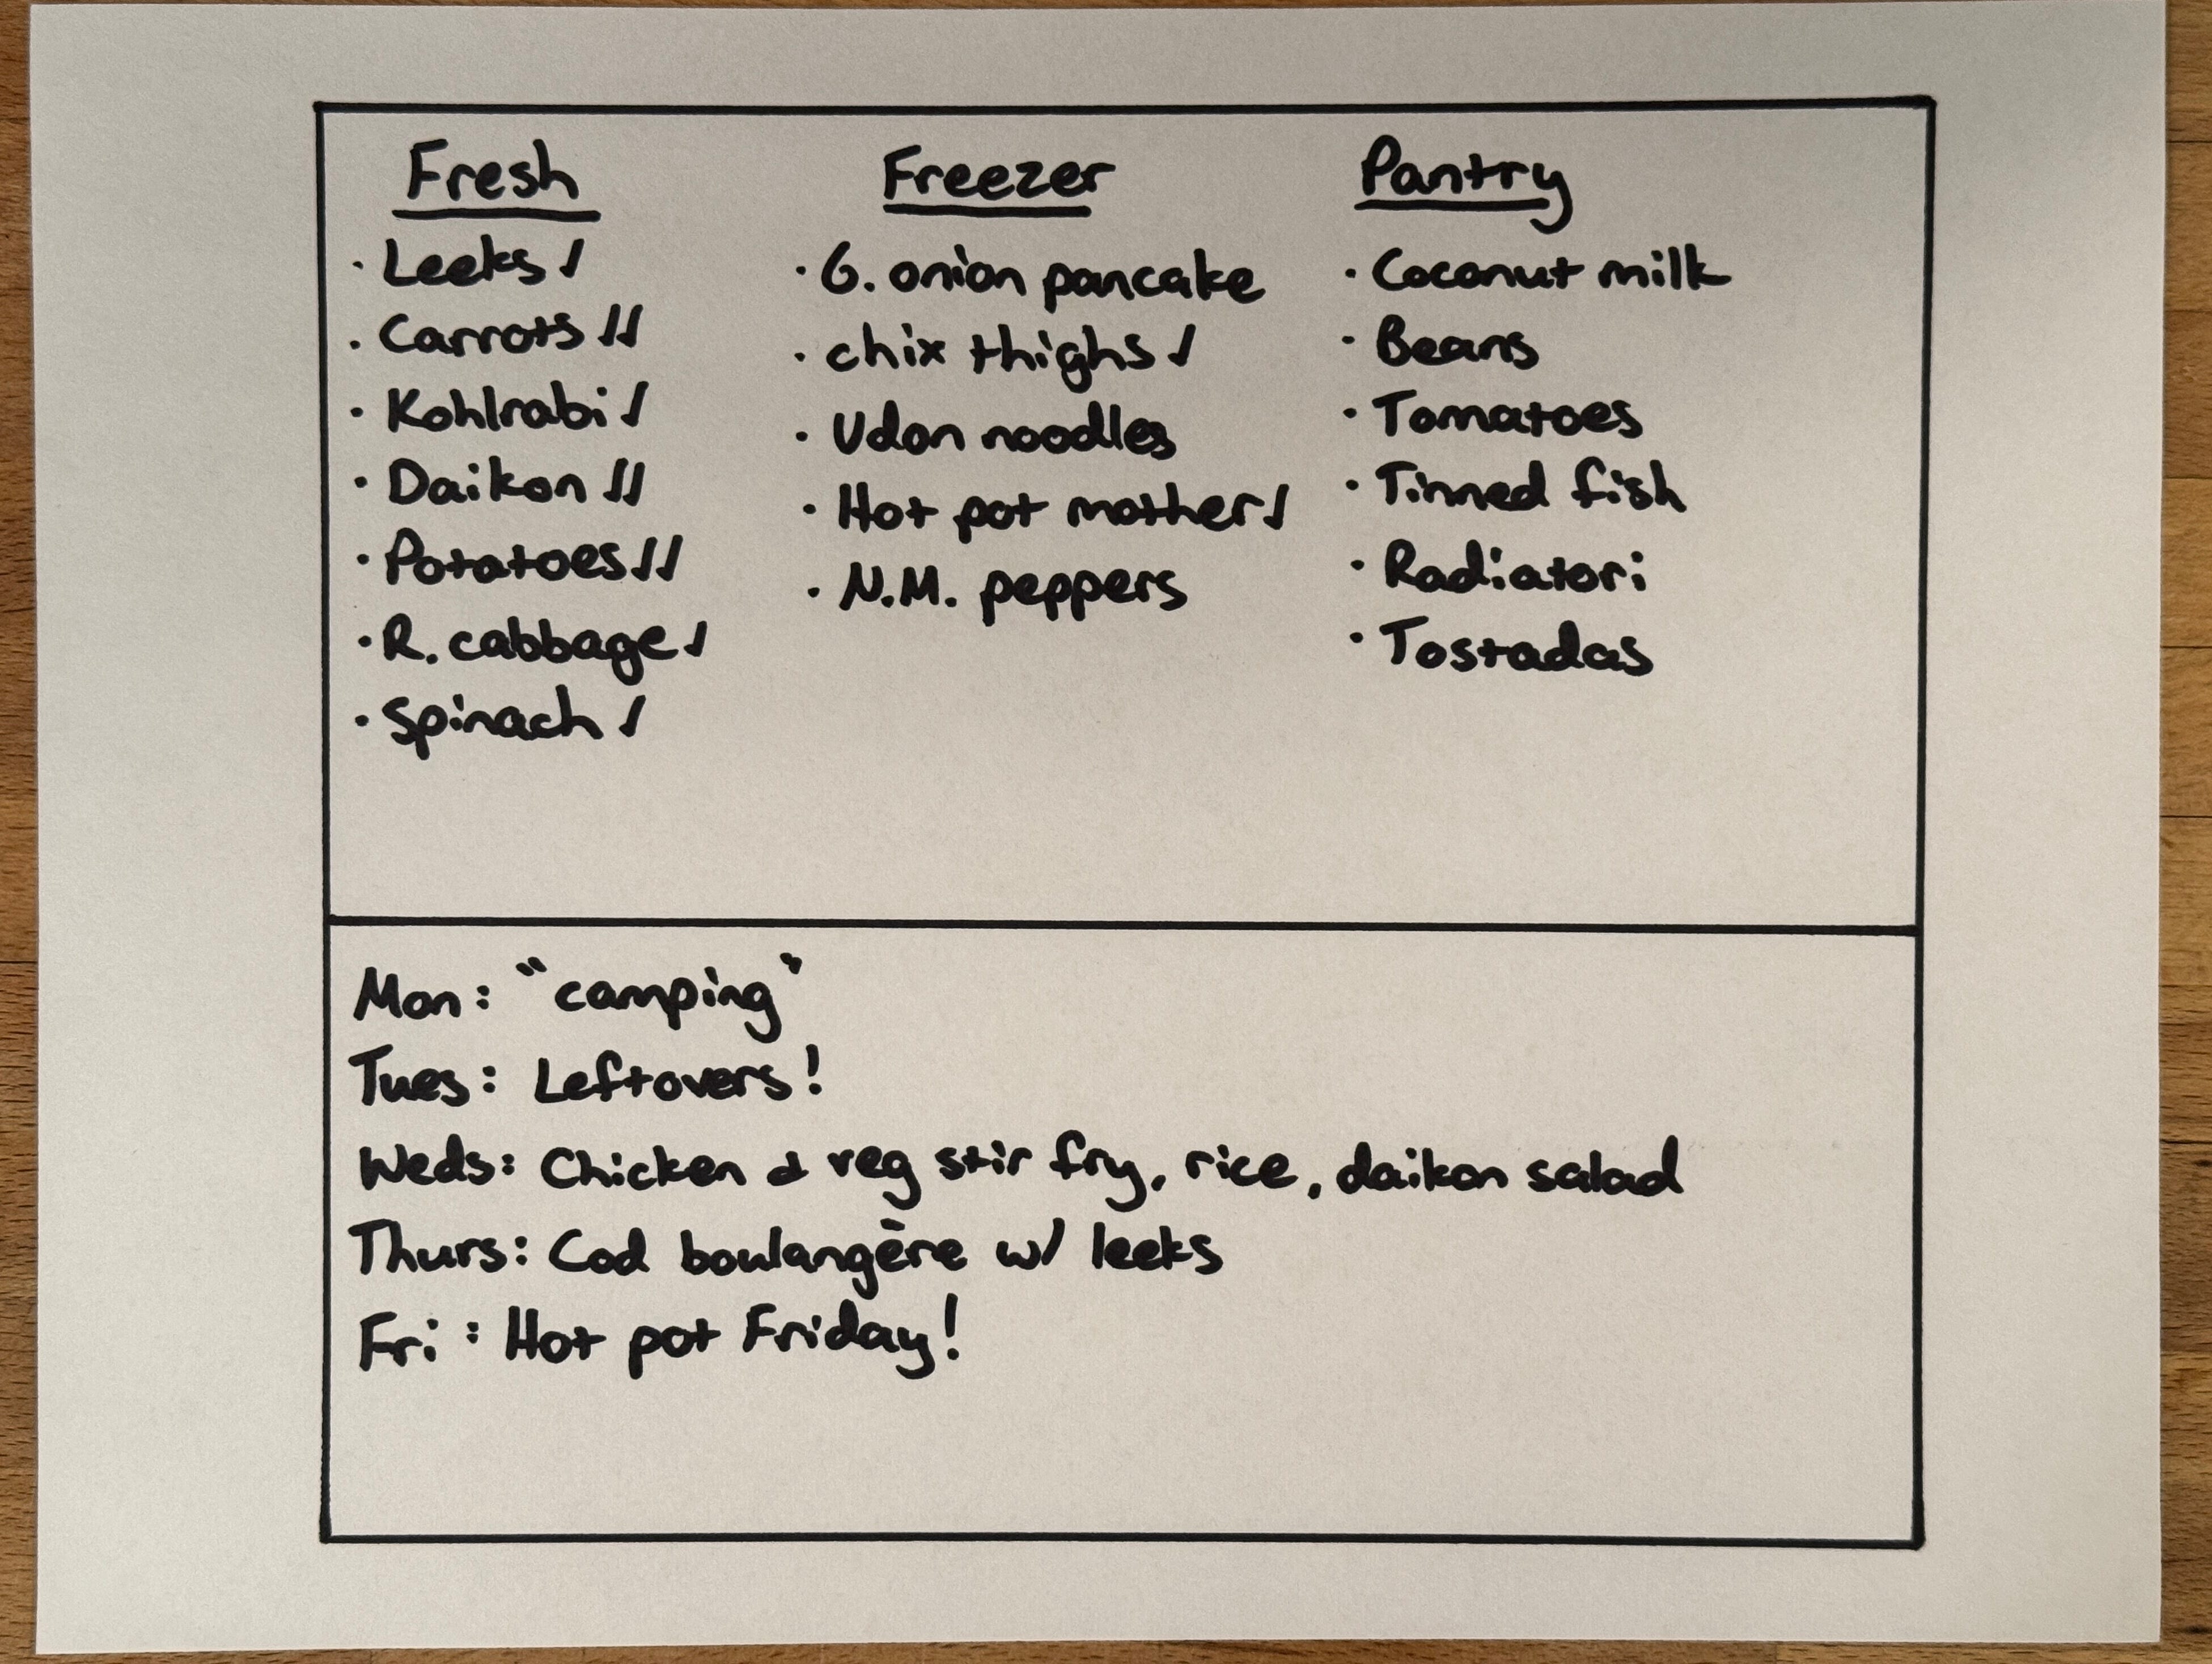 Fresh
· Leeks ✓
· Carrots ✓✓
· Kohlrabi ✓
· Daikon ✓✓
· Potatoes ✓✓
· R. cabbage ✓
· Spinach ✓
Freezer
· G. onion pancake
· chix thighs ✓
· Udon noodles
· Hot pot mother ✓
· N.M. peppers
Pantry
· Coconut milk
· Beans
· Tomatoes
· Tinned fish
· Radiatori
· Tostadas
Mon: "camping"
Tues: Leftovers!
Weds: Chicken & veg stir fry, rice, daikon salad
Thurs: Cod boulangère w/ leeks
Fri: Hot pot Friday!